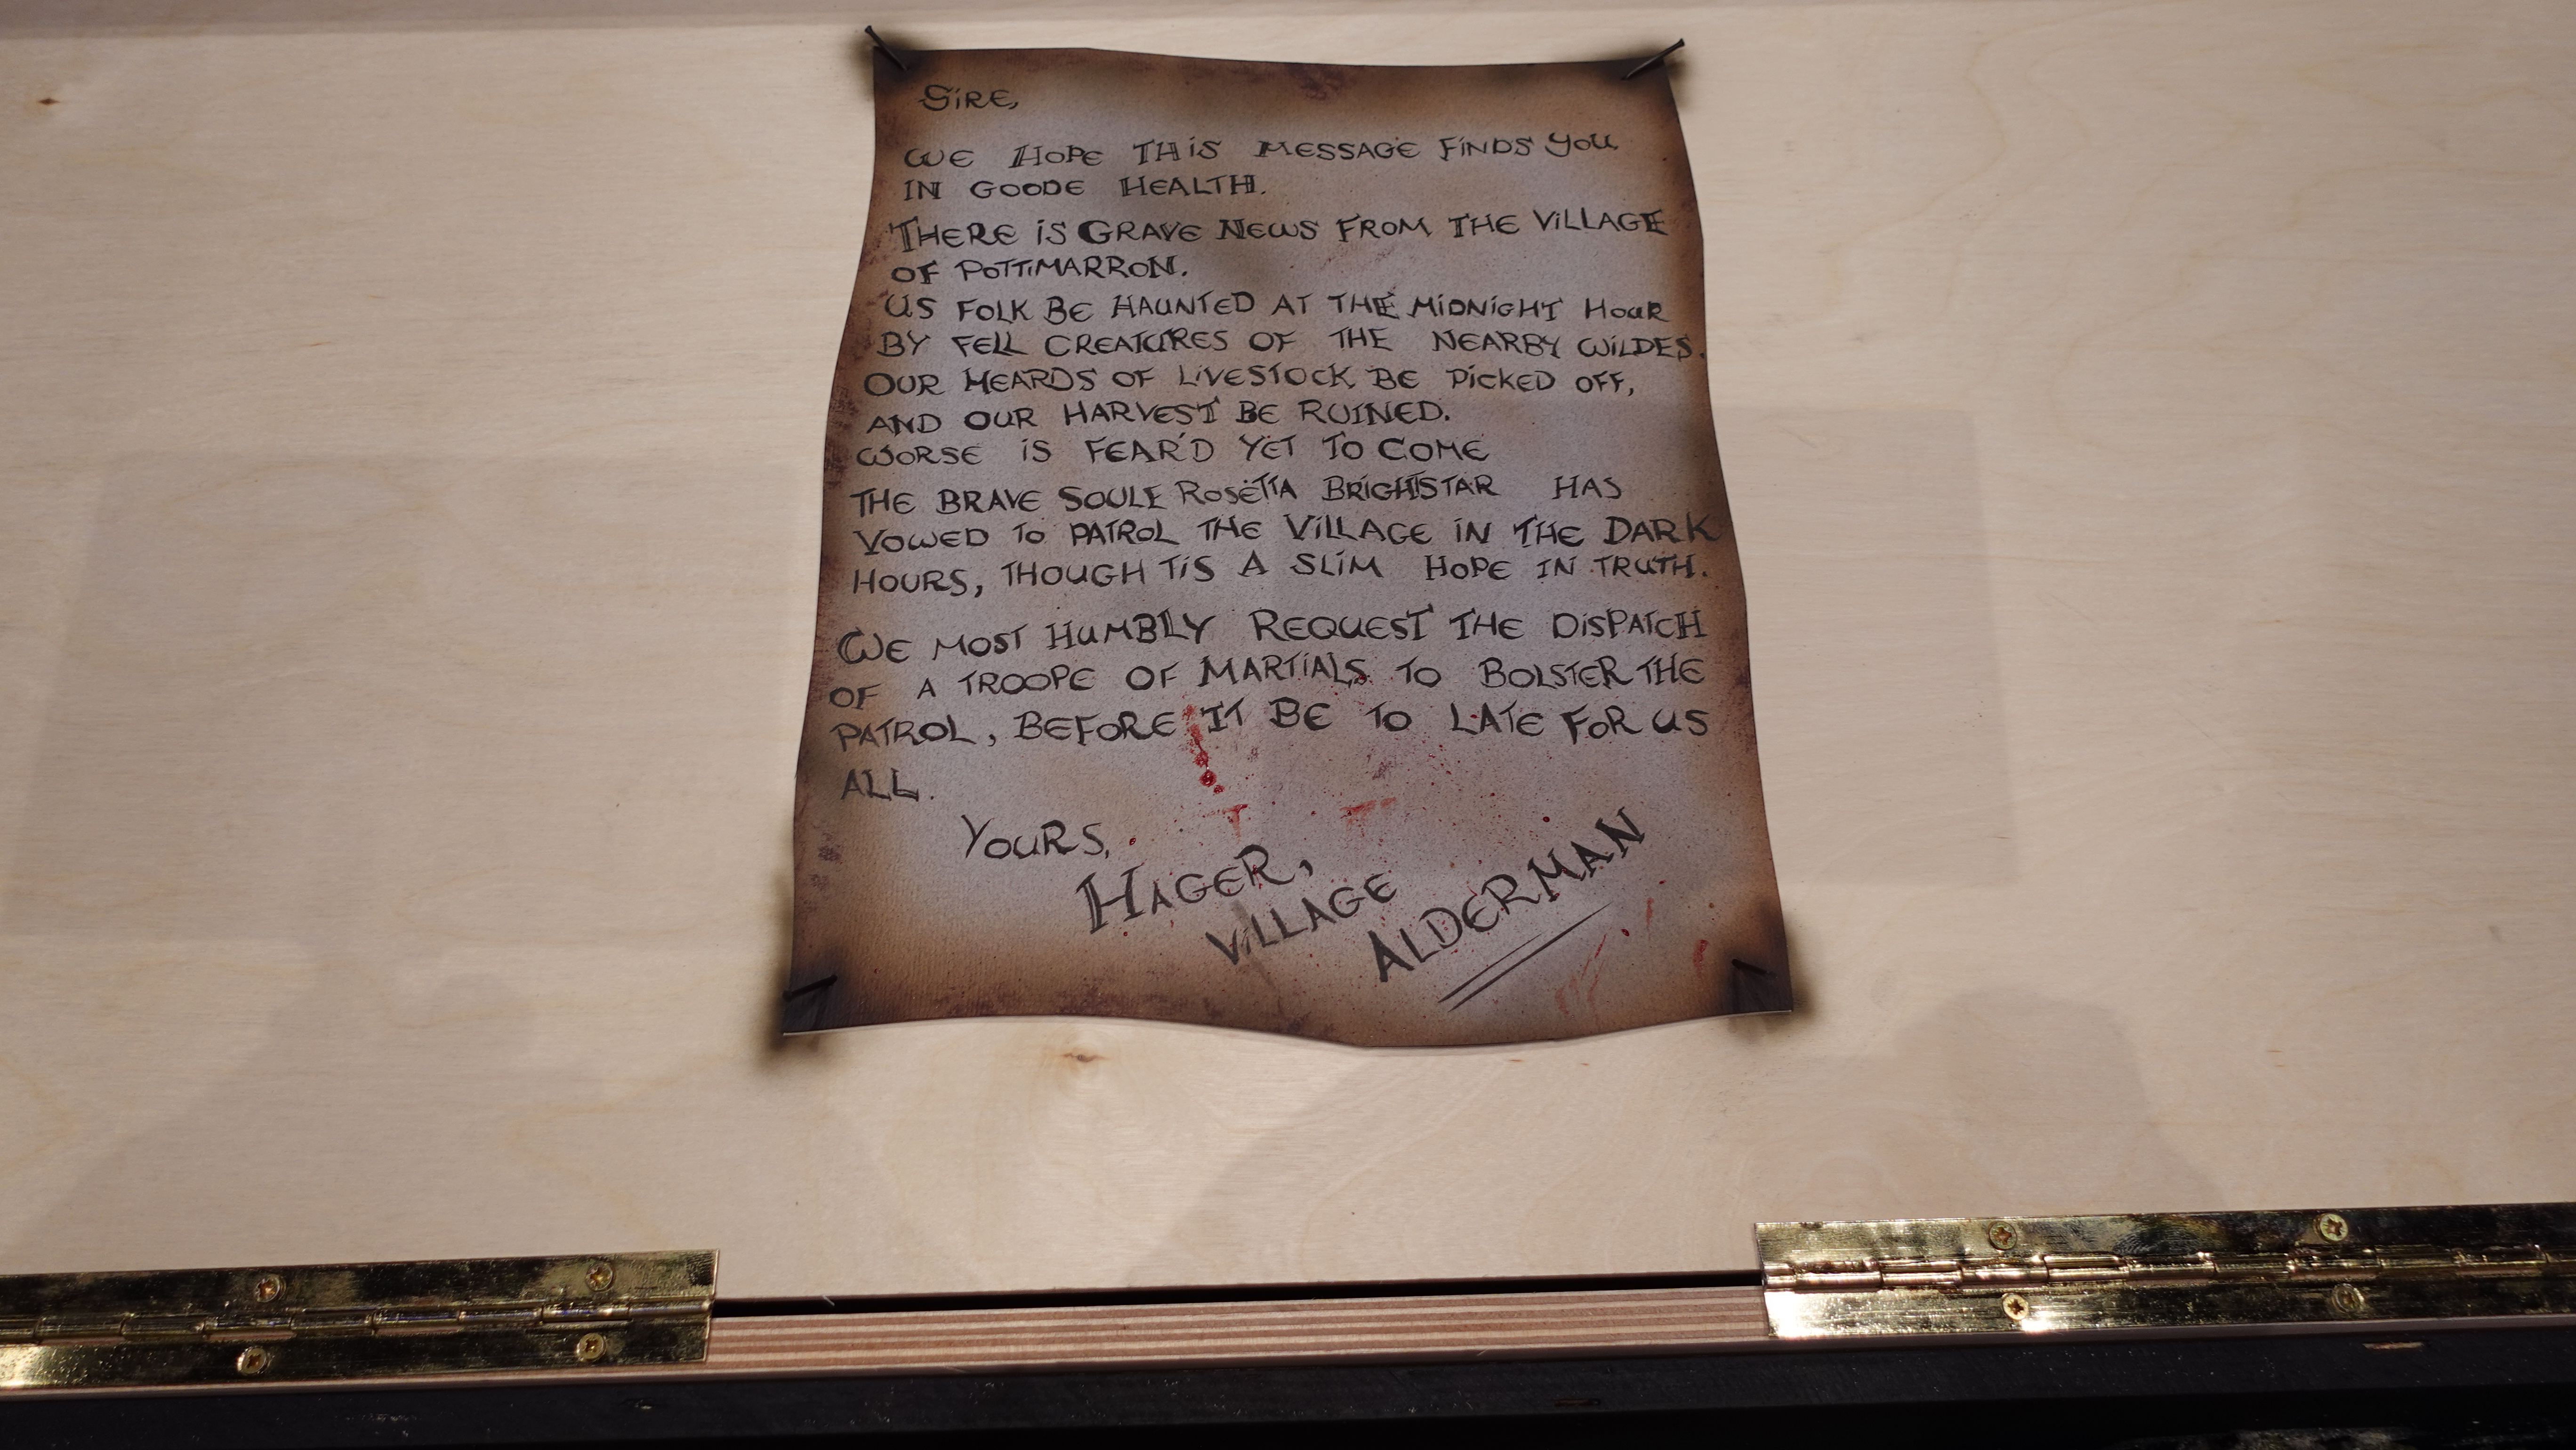 SIRE,
WE HOPE THIS MESSAGE FINDS YOU
IN GOODE HEALTH.
THERE IS GRAVE NEWS FROM THE VILLAGE
OF POTTIMARRON.
US FOLK BE HAUNTED AT THE MIDNIGHT HOUR
BY FELL CREATURES OF THE NEARBY WILDES.
OUR HEARDS OF LIVESTOCK BE PICKED OFF,
AND OUR HARVEST BE RUINED.
WORSE IS FEAR'D YET TO COME
THE BRAVE SOULE ROSETTA BRIGHTSTAR HAS
VOWED TO PATROL THE VILLAGE IN THE DARK
HOURS, THOUGH TIS A SLIM HOPE IN TRUTH.
WE MOST HUMBLY REQUEST THE DISPATCH
OF A TROOPE OF MARTIALS TO BOLSTER THE
PATROL, BEFORE IT BE TO LATE FOR US
ALL.
YOURS,
HAGER,
VILLAGE
ALDERMAN